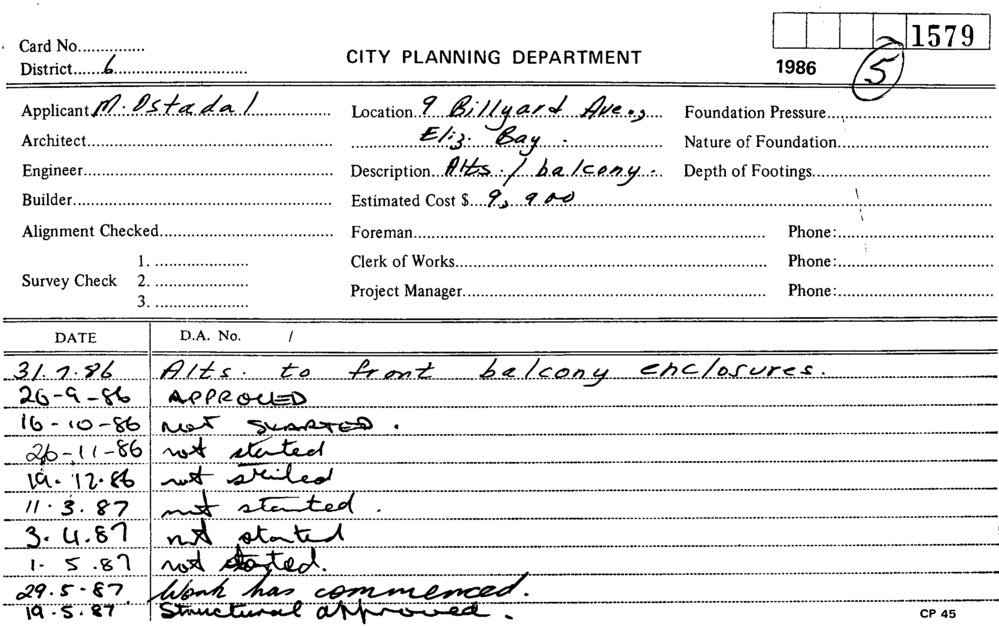 Card No...............
1579
District......6..............................
CITY PLANNING DEPARTMENT
1986
5
Applicant M. Ostadal
Location 9 Billyard Ave.,
Foundation Pressure
Architect
Eliz. Bay.
Nature of Foundation
Engineer
Description Alts. / balcony.
Depth of Footings
Builder
Estimated Cost $ 9,900
Alignment Checked
Foreman
Phone:
Survey Check
1.
2.
3.
Clerk of Works
Phone:
Project Manager
Phone:
DATE
D.A. No. /
31.7.86 Alts. to front balcony enclosures.
26-9-86 APPROVED
16-10-86 NOT STARTED.
26-11-86 not started
19.12.86 not started
11.3.87 not started.
3.4.87 not started
1.5.87 not started.
29.5.87 Work has commenced.
19.5.87 Structural approved.
CP 45